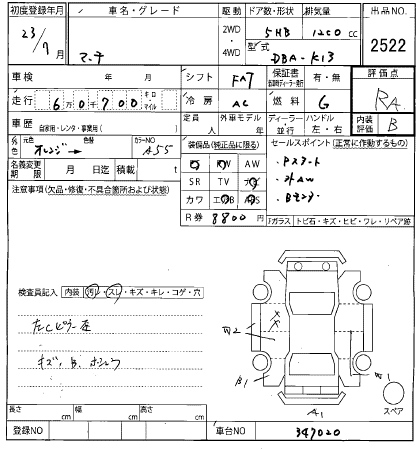 初度登録年月 車名・グレード 駆動 ドア数・形状 排気量 出品NO.
23/7 マーチ 2WD・4WD 5HB 1200 cc 2522
型式 DBA-K13
車検 年 月 シフト FAT 保証書 有・無 評価点
走行 6万0千700 キロ マイル 冷房 AC 燃料 G RA
車歴 自家用・レンタ・事業用( ) 定員 人 外車モデル 年 ディーラー・並行 ハンドル 左・右 内装評価 B
外色 元色 オレンジ 色替 カラーNO. A55
装備品(純正品に限る) セールスポイント(正常に動作するもの)
名義変更期限 月 日迄 積載 t
PS PW AW
SR TV ナビ
カワ エアB ABS
・Pスタート
・外AW
注意事項(欠品・修復・不具合箇所および状態)
R券 8800 円
Fガラス トビ石・キズ・ヒビ・ワレ・リペア跡
検査員記入 内装 汚レ・スレ・キズ・キレ・コゲ・穴
左Cピラー
キズ、B、
W2
B1
W1
A1
スペア
長さ cm 幅 cm 高さ cm
登録NO 車台NO 347020